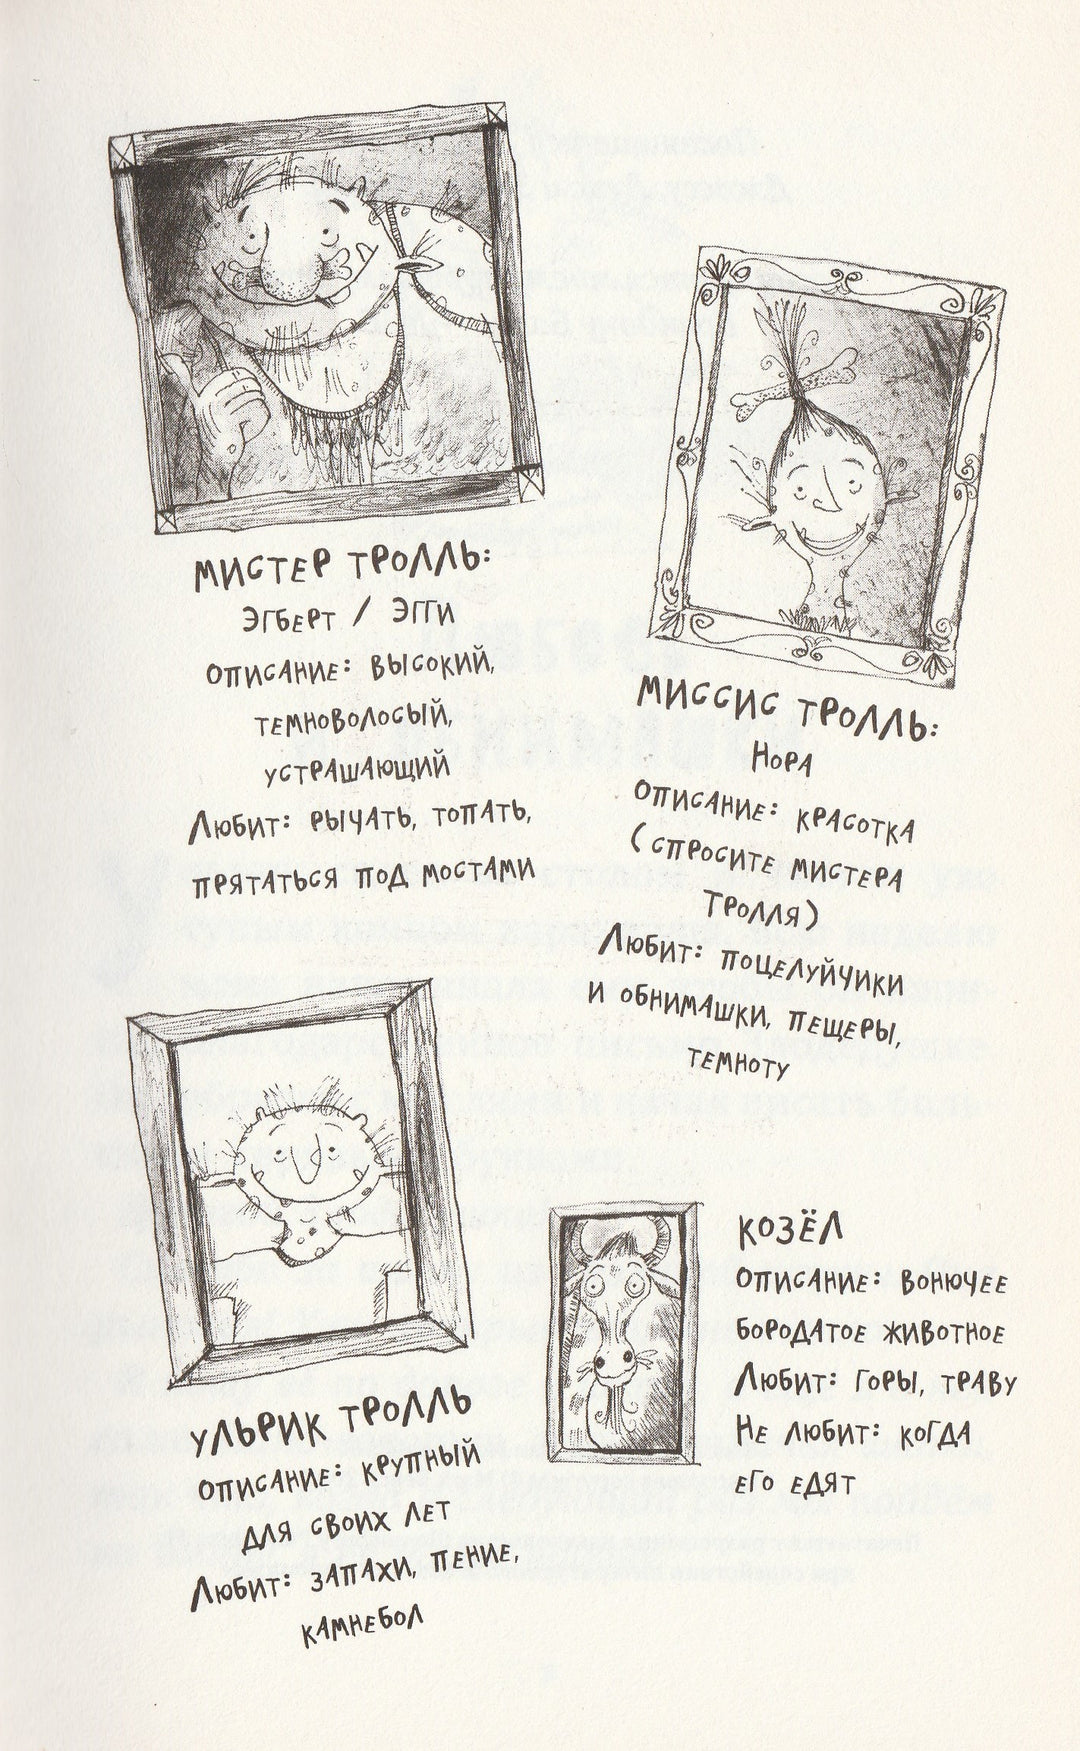 Мистер Тролль:
Эгберт / Эгги
Описание: высокий,
темноволосый,
устрашающий
Любит: рычать, топать,
прятаться под мостами
Миссис Тролль:
Нора
Описание: красотка
(спросите мистера
Тролля)
Любит: поцелуйчики
и обнимашки, пещеры,
темноту
Ульрик Тролль
Описание: крупный
для своих лет
Любит: запахи, пение,
камнебол
Козёл
Описание: вонючее
бородатое животное
Любит: горы, траву
Не любит: когда
его едят